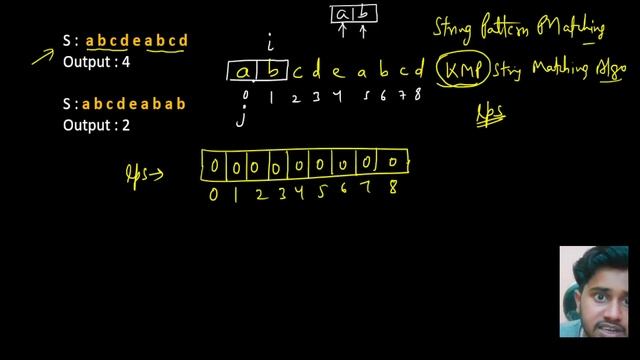 S : a b c d e a b c d
Output : 4
S : a b c d e a b a b
Output : 2
a b
i
a b c d e a b c d
0 1 2 3 4 5 6 7 8
j
String Pattern Matching
KMP String Matching Algo
lps
lps → 0 0 0 0 0 0 0 0 0
0 1 2 3 4 5 6 7 8